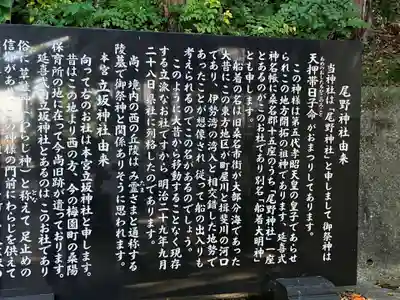 尾野神社由来
当神社は「尾野神社」と申しまして御祭神は
天押帯日子
がおまつりしてあります。
この神様は第五代孝昭天皇の皇子であらせ
られこの地方開拓の祖神であります、延喜式
神名帳に桑名郡十五座のうち「尾野神社」一座
とあるのがこのお社であり別名「船着大明神」
とも申します。
船着の名は桑名市街が大部分海であった
大昔にこの東方田が町屋川と揖斐川の河口
であり 伊勢湾の湾入と相交錯した地勢で
あったことが想像され 従って船の出入りも
考えられるのでこの名があるのでしょう。
このように大昔から移動することなく現存
する立派なお社ですから明治二十九年九月
二十八日県社に列格したのであります。
尚、境内の西の丘陵は み霊さまと通称する
陵墓で御祭神と関係ありそうに思われます。
本宮 立坂神社 由来
向ってる のお社は本宮立坂神社と申します。
昔はこの地より西の方、今の梅園町の桑陽
保育所の地に在って今尚旧跡が遺っております。
延喜式の立坂神社とあるのはこのお社であり
俗に草
神（わらじ神）と称えて足止めの
信仰があり
の門前にわらじを供えて